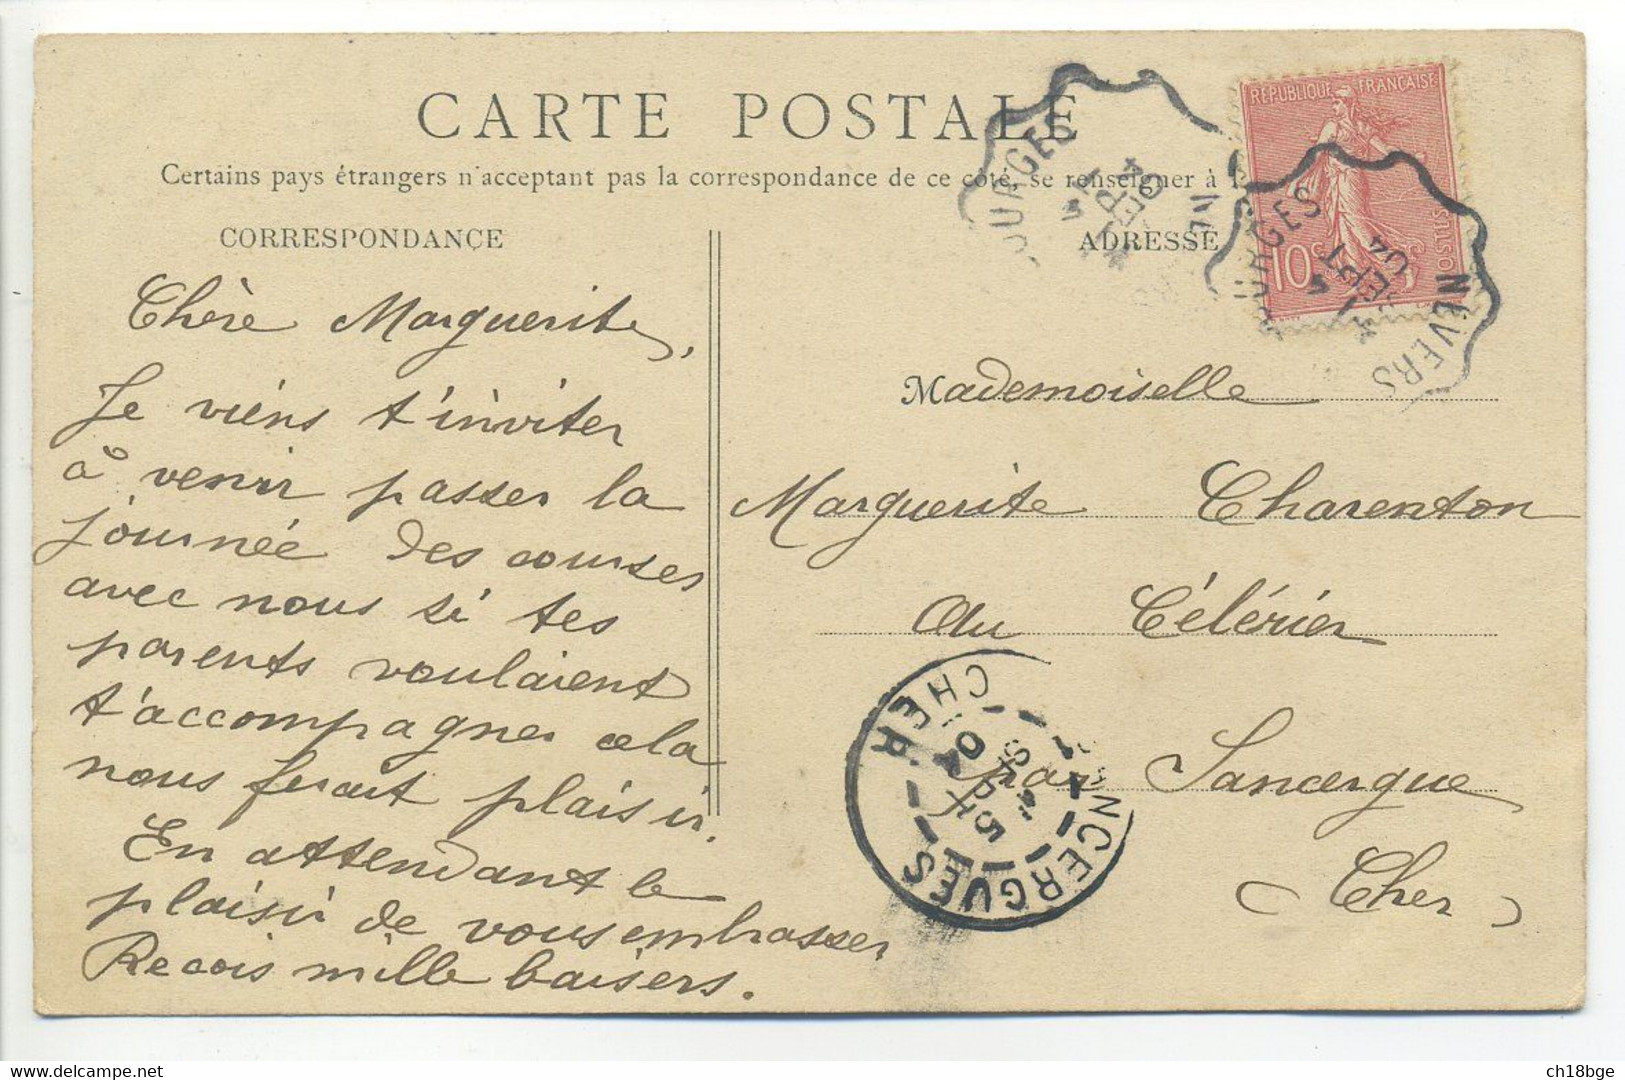 CARTE POSTALE
Certains pays étrangers n'acceptant pas la correspondance de ce côté, se renseigner à
CORRESPONDANCE
Chère Marguerite,
Je viens t'inviter
à venir passer la
journée des courses
avec nous si tes
parents voulaient
t'accompagner cela
nous ferait plaisir.
En attendant le
plaisir de vous embrasser
Recois mille baisers.
ADRESSE
Mademoiselle
Marguerite Charenton
Au Célérier
par Sancergue
(Cher)
REPUBLIQUE FRANÇAISE
POSTES
10c
BOURGES
SEPT
04
NEVERS
SANCERGUES
CHER
5
SEPT
04
ch18bge